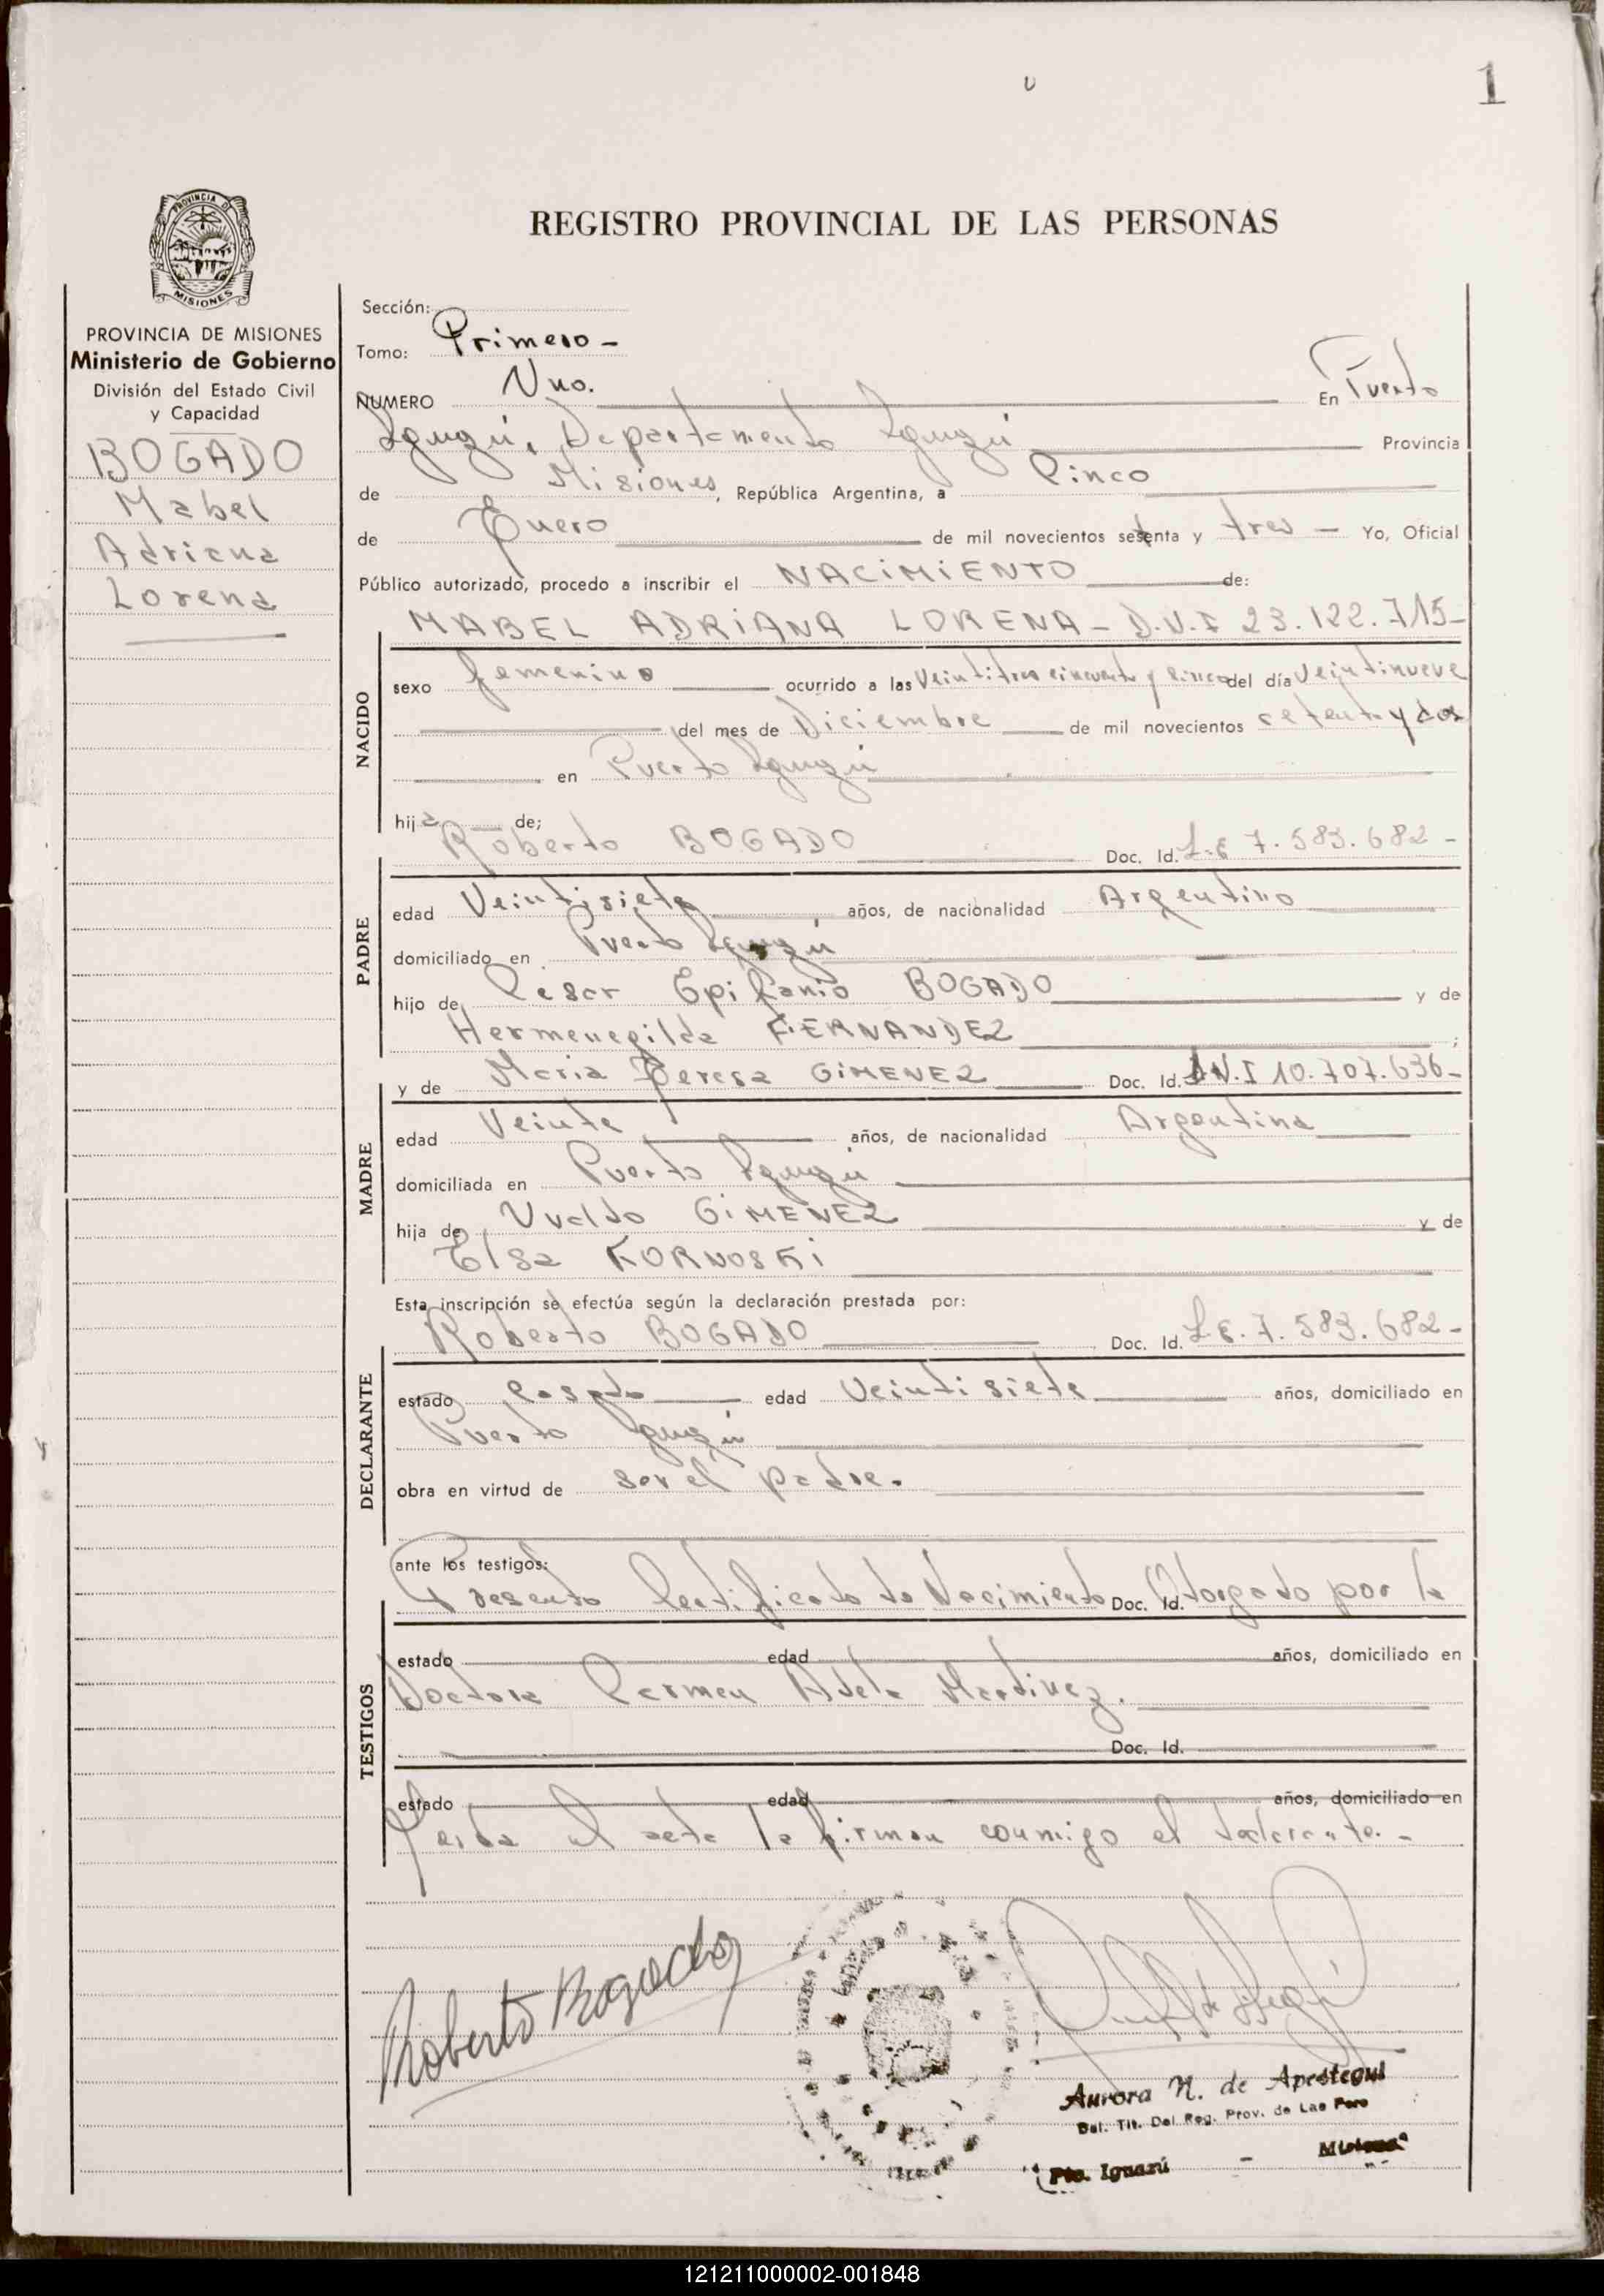 1
PROVINCIA DE
MISIONES
REGISTRO PROVINCIAL DE LAS PERSONAS
PROVINCIA DE MISIONES
Ministerio de Gobierno
División del Estado Civil
y Capacidad
BOGADO
Mabel
Adriana
Lorena
Sección:
Tomo: Primero -
NUMERO Uno. En Puerto
Iguazú, Departamento Iguazú Provincia
de Misiones, República Argentina, a Cinco
de Enero de mil novecientos setenta y tres - Yo, Oficial
Público autorizado, procedo a inscribir el NACIMIENTO de:
MABEL ADRIANA LORENA - D.N.I 23.122.715-
NACIDO
sexo femenino ocurrido a las Veintitres cincuenta y cinco del día Veintinueve
del mes de Diciembre de mil novecientos setenta y dos
en Puerto Iguazú
hija de;
Roberto BOGADO Doc. Id. L.E 7.583.682-
PADRE
edad Veintisiete años, de nacionalidad Argentino
domiciliado en Puerto Iguazú
hijo de Cesar Epifanio BOGADO y de
Hermenegilda FERNANDEZ ;
y de Maria Teresa GIMENEZ Doc. Id. D.N.I 10.707.636-
MADRE
edad Veinte años, de nacionalidad Argentina
domiciliada en Puerto Iguazú
hija de Uvaldo GIMENEZ y de
Elsa KORNOSKI
Esta inscripción se efectúa según la declaración prestada por:
Roberto BOGADO Doc. Id. L.E. 7.583.682-
DECLARANTE
estado Casado edad Veintisiete años, domiciliado en
Puerto Iguazú
obra en virtud de ser el padre.
ante los testigos:
Presento Certificado de Nacimiento Doc. Id. Otorgado por la
TESTIGOS
estado edad años, domiciliado en
Doctora Carmen Adela Martinez.
Doc. Id.
estado edad años, domiciliado en
Leida el acta la firman conmigo el declarante.-
Roberto Bogado
Aurora N. de Apestegui
Del. Tit. Del Reg. Prov. de Las Pers
Pto. Iguazú - Misiones
121211000002-001848